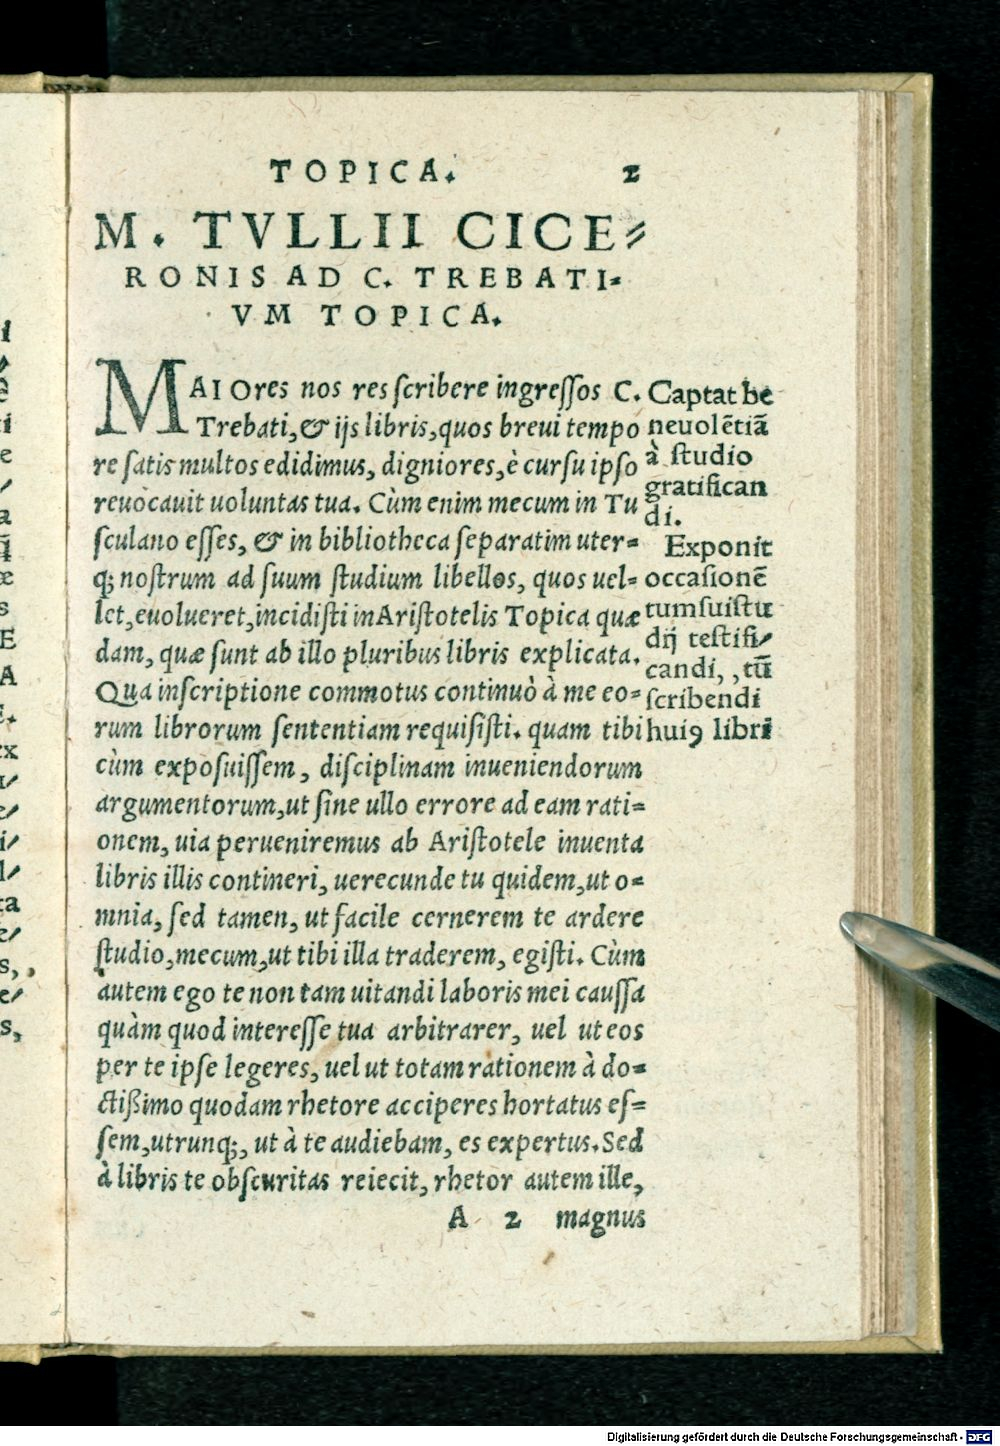 TOPICA. 2
M. TVLLII CICE⸗
RONIS AD C. TREBATI⸗
VM TOPICA.
MAIOres nos res ſcribere ingreſſos C.
Trebati, & ijs libris, quos breui tempo
re ſatis multos edidimus, digniores, è curſu ipſo
reuocauit uoluntas tua. Cùm enim mecum in Tu
ſculano eſſes, & in bibliotheca ſeparatim uter⸗
q; noſtrum ad ſuum ſtudium libellos, quos uel⸗
let, euolueret, incidiſti in Ariſtotelis Topica quæ
dam, quæ ſunt ab illo pluribus libris explicata.
Qua inſcriptione commotus continuò à me eo⸗
rum librorum ſententiam requiſiſti. quam tibi
cùm expoſuiſſem, diſciplinam inueniendorum
argumentorum, ut ſine ullo errore ad eam rati⸗
onem, uia perueniremus ab Ariſtotele inuenta
libris illis contineri, uerecunde tu quidem, ut o⸗
mnia, ſed tamen, ut facile cernerem te ardere
ſtudio, mecum, ut tibi illa traderem, egiſti. Cùm
autem ego te non tam uitandi laboris mei cauſſa
quàm quod intereſſe tua arbitrarer, uel ut eos
per te ipſe legeres, uel ut totam rationem à do⸗
ctißimo quodam rhetore acciperes hortatus eſ⸗
ſem, utrunq;, ut à te audiebam, es expertus. Sed
à libris te obſcuritas reiecit, rhetor autem ille,
A 2 magnus
Captat be
neuolẽtiã
à ſtudio
gratifican
di.
Exponit
occaſionẽ
tum ſui ſtu
dij teſtifi⸗
candi, , tũ
ſcribendi
huiꝰ libri
Digitalisierung gefördert durch die Deutsche Forschungsgemeinschaft - DFG